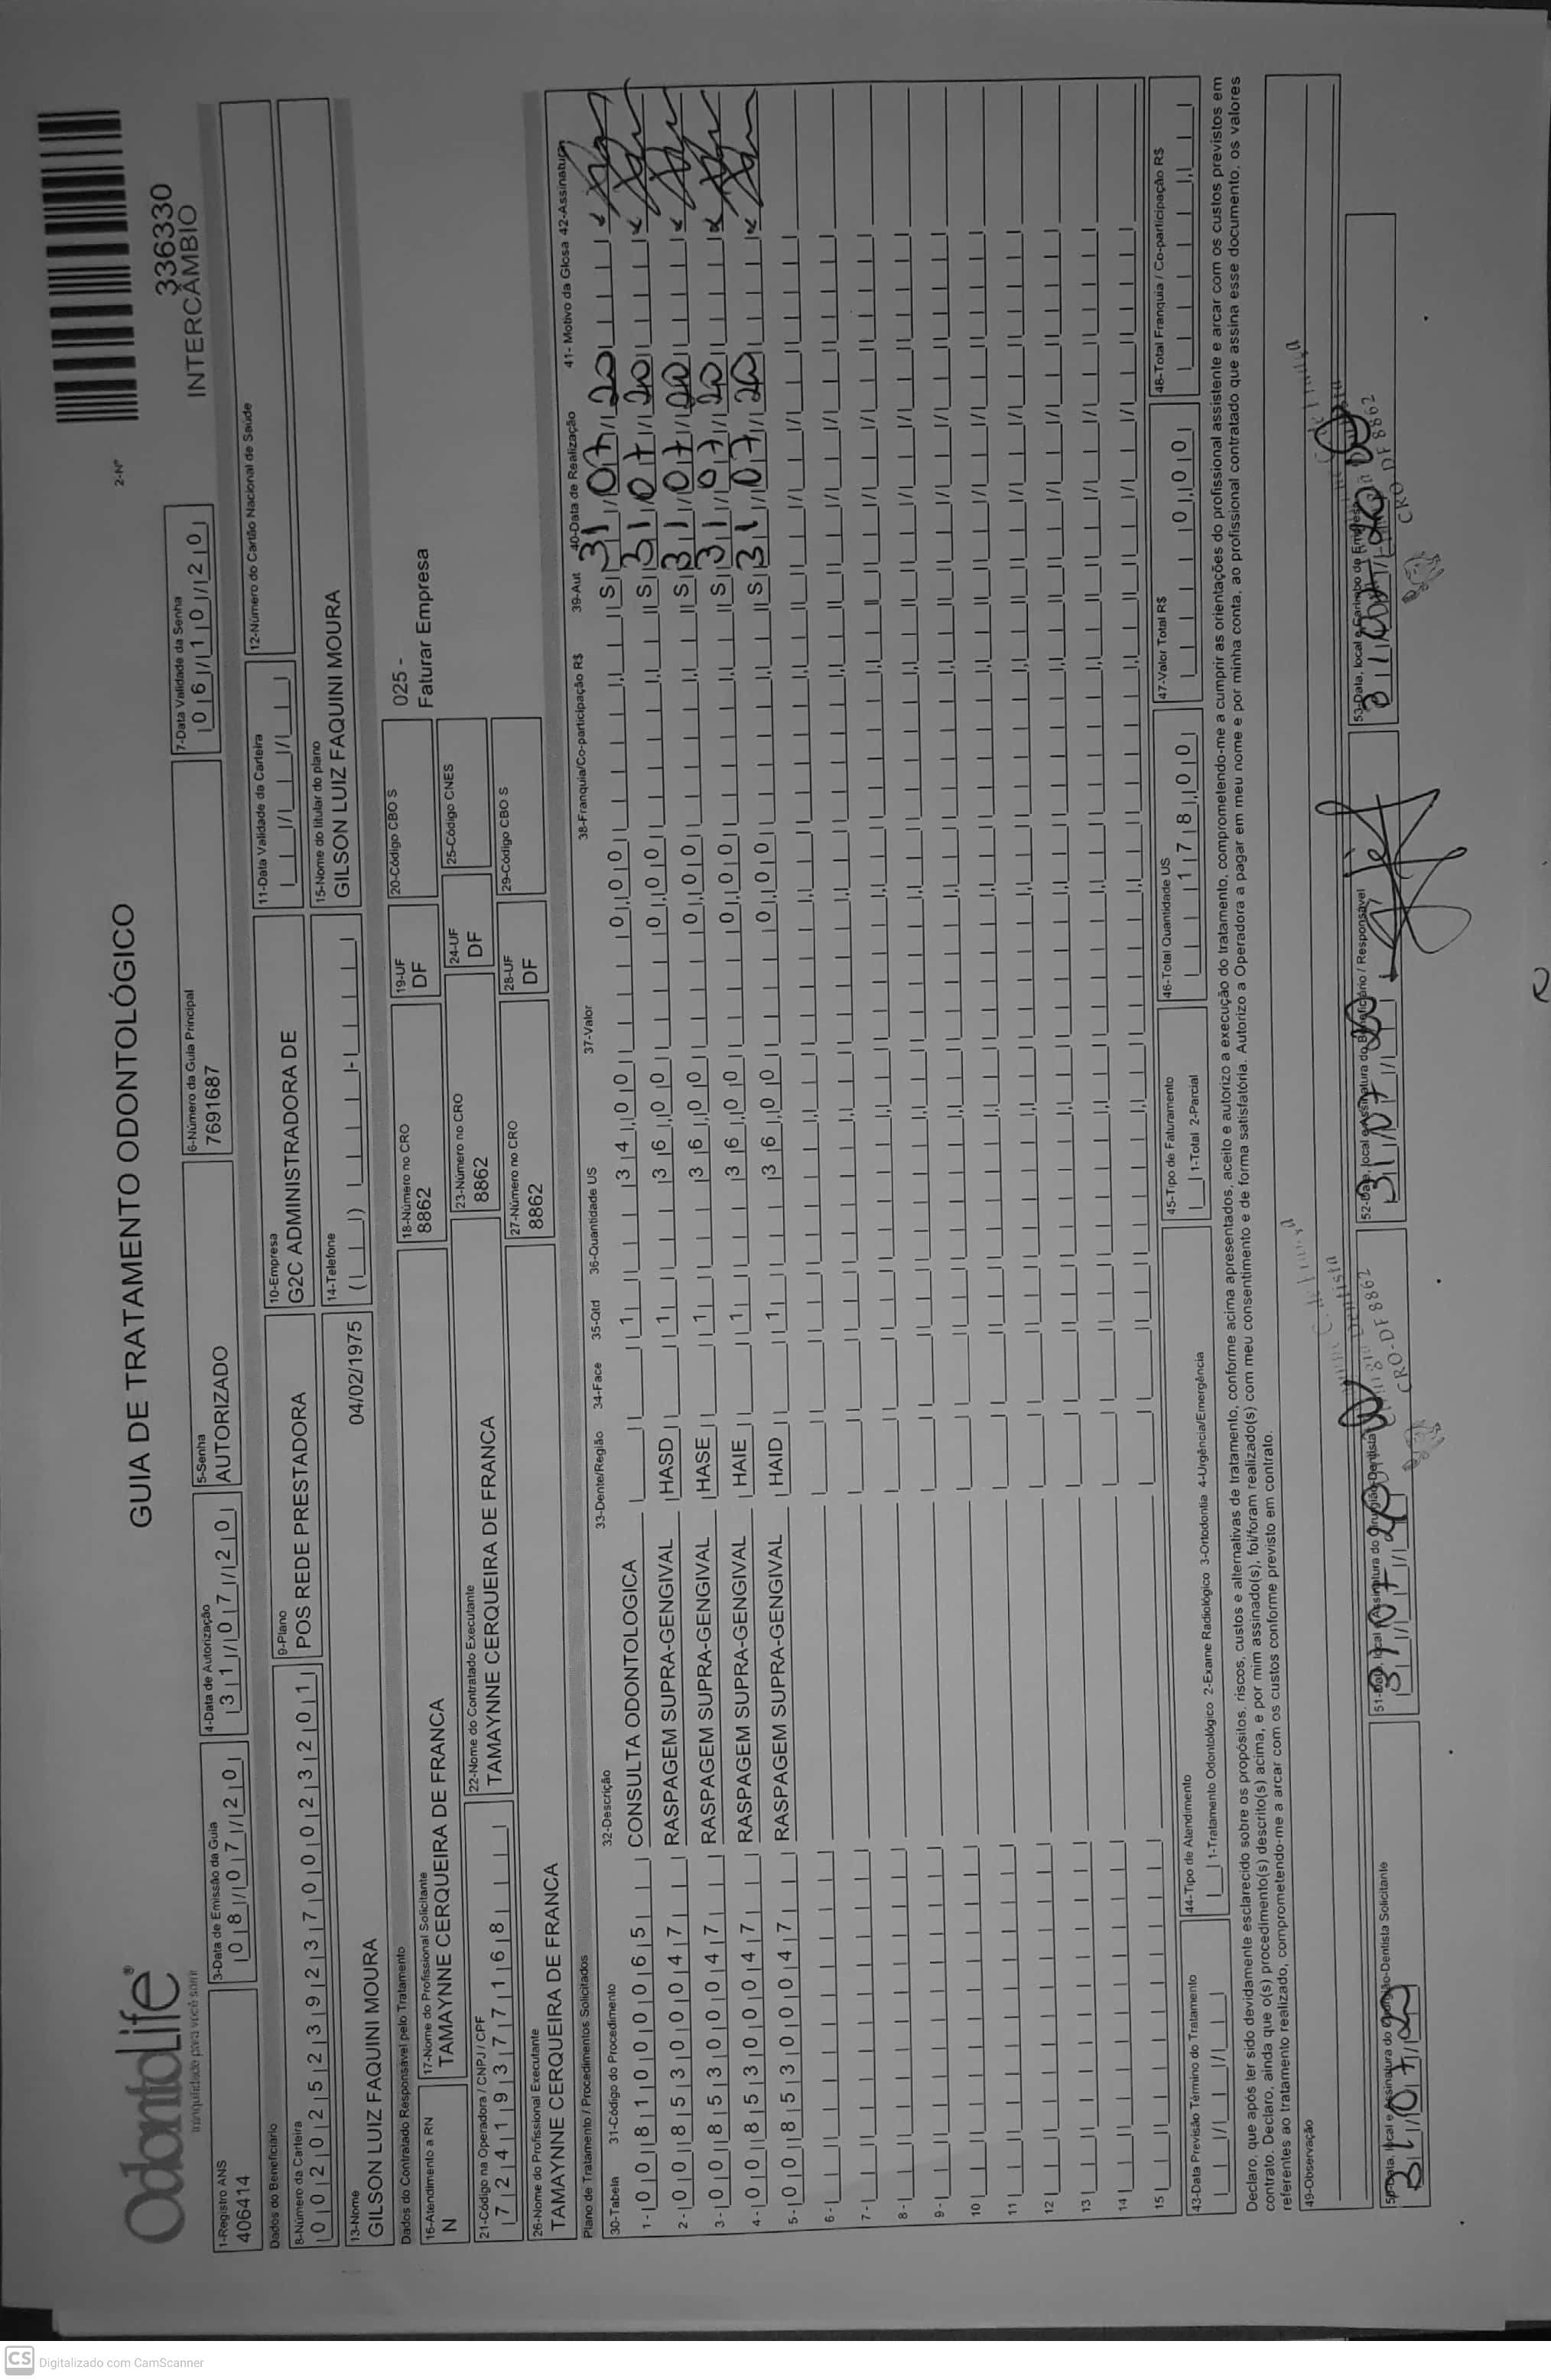 OdontoLife®
tranquilidade para você sorrir
GUIA DE TRATAMENTO ODONTOLÓGICO
2-Nº
336330
INTERCÂMBIO
1-Registro ANS
406414
3-Data de Emissão da Guia
08/07/20
4-Data de Autorização
31/07/20
5-Senha
AUTORIZADO
6-Número da Guia Principal
7691687
7-Data Validade da Senha
06/10/20
Dados do Beneficiário
8-Número da Carteira
00202523923700023201
9-Plano
POS REDE PRESTADORA
10-Empresa
G2C ADMINISTRADORA DE
11-Data Validade da Carteira
12-Número do Cartão Nacional de Saúde
13-Nome
GILSON LUIZ FAQUINI MOURA
04/02/1975
14-Telefone
15-Nome do titular do plano
GILSON LUIZ FAQUINI MOURA
Dados do Contratado Responsável pelo Tratamento
16-Atendimento a RN
N
17-Nome do Profissional Solicitante
TAMAYNNE CERQUEIRA DE FRANCA
18-Número no CRO
8862
19-UF
DF
20-Código CBO S
025 -
Faturar Empresa
21-Código na Operadora / CNPJ / CPF
72419377168
22-Nome do Contratado Executante
TAMAYNNE CERQUEIRA DE FRANCA
23-Número no CRO
8862
24-UF
DF
25-Código CNES
26-Nome do Profissional Executante
TAMAYNNE CERQUEIRA DE FRANCA
27-Número no CRO
8862
28-UF
DF
29-Código CBO S
Plano de Tratamento / Procedimentos Solicitados
30-Tabela 31-Código do Procedimento 32-Descrição 33-Dente/Região 34-Face 35-Qtd 36-Quantidade US 37-Valor 38-Franquia/Co-participação R$ 39-Aut 40-Data de Realização 41- Motivo da Glosa 42-Assinatura
1 - 00 81000065 CONSULTA ODONTOLOGICA 1 34,00 0,00 S 31/07/20
2 - 00 85300047 RASPAGEM SUPRA-GENGIVAL HASD 1 36,00 0,00 S 31/07/20
3 - 00 85300047 RASPAGEM SUPRA-GENGIVAL HASE 1 36,00 0,00 S 31/07/20
4 - 00 85300047 RASPAGEM SUPRA-GENGIVAL HAIE 1 36,00 0,00 S 31/07/20
5 - 00 85300047 RASPAGEM SUPRA-GENGIVAL HAID 1 36,00 0,00 S 31/07/20
6 -
7 -
8 -
9 -
10
11
12
13
14
15
43-Data Previsão Término do Tratamento
44-Tipo de Atendimento
1-Tratamento Odontológico 2-Exame Radiológico 3-Ortodontia 4-Urgência/Emergência
45-Tipo de Faturamento
1-Total 2-Parcial
46-Total Quantidade US
178,00
47-Valor Total R$
0,00
48-Total Franquia / Co-participação R$
Declaro, que após ter sido devidamente esclarecido sobre os propósitos, riscos, custos e alternativas de tratamento, conforme acima apresentados, aceito e autorizo a execução do tratamento, comprometendo-me a cumprir as orientações do profissional assistente e arcar com os custos previstos em
contrato. Declaro, ainda que o(s) procedimento(s) descrito(s) acima, e por mim assinado(s), foi/foram realizado(s) com meu consentimento e de forma satisfatória. Autorizo a Operadora a pagar em meu nome e por minha conta, ao profissional contratado que assina esse documento, os valores
referentes ao tratamento realizado, comprometendo-me a arcar com os custos conforme previsto em contrato.
49-Observação
50-Data, local e Assinatura do Cirurgião-Dentista Solicitante
31/07/20
51-Data, local e Assinatura do Cirurgião-Dentista
31/07/20
CRO-DF 8862
52-Data, local e Assinatura do Beneficiário / Responsável
31/07/20
53-Data, local e Carimbo da Empresa
31/07/20
CRO-DF 8862
CS Digitalizado com CamScanner